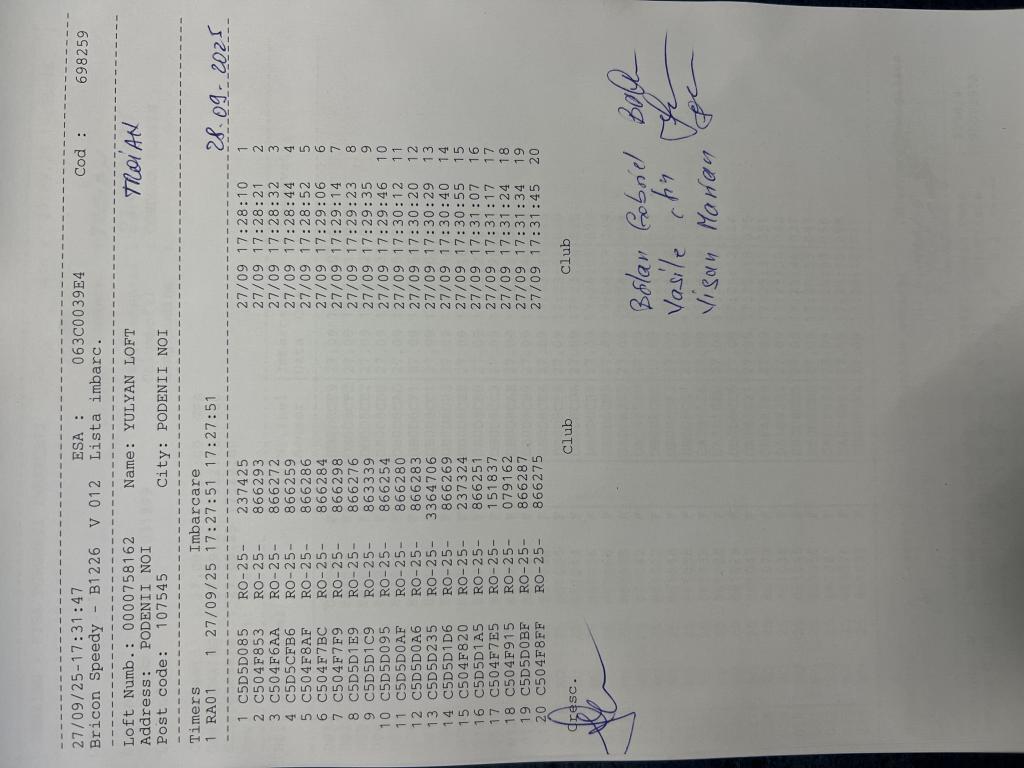 27/09/25-17:31:47 ESA : 063C0039E4 Cod : 698259
Bricon Speedy - B1226 V 012 Lista imbarc.
Loft Numb.: 0000758162 Name: YULYAN LOFT TROIAN
Address: PODENII NOI
Post code: 107545 City: PODENII NOI
Timers Imbarcare
1 RA01 1 27/09/25 17:27:51 17:27:51 28.09.2025
1 C5D5D085 RO-25- 237425 27/09 17:28:10 1
2 C504F853 RO-25- 866293 27/09 17:28:21 2
3 C504F6AA RO-25- 866272 27/09 17:28:32 3
4 C5D5CFB6 RO-25- 866259 27/09 17:28:44 4
5 C504F8AF RO-25- 866286 27/09 17:28:52 5
6 C504F7BC RO-25- 866284 27/09 17:29:06 6
7 C504F7F9 RO-25- 866298 27/09 17:29:14 7
8 C5D5D1E9 RO-25- 866276 27/09 17:29:23 8
9 C5D5D1C9 RO-25- 863339 27/09 17:29:35 9
10 C5D5D095 RO-25- 866254 27/09 17:29:46 10
11 C5D5D0AF RO-25- 866280 27/09 17:30:12 11
12 C5D5D0A6 RO-25- 866283 27/09 17:30:20 12
13 C5D5D235 RO-25- 3364706 27/09 17:30:29 13
14 C5D5D1D6 RO-25- 866269 27/09 17:30:40 14
15 C504F820 RO-25- 237324 27/09 17:30:55 15
16 C5D5D1A5 RO-25- 866251 27/09 17:31:07 16
17 C504F7E5 RO-25- 151837 27/09 17:31:17 17
18 C504F915 RO-25- 079162 27/09 17:31:24 18
19 C5D5D0BF RO-25- 866287 27/09 17:31:34 19
20 C504F8FF RO-25- 866275 27/09 17:31:45 20
Cresc. Club Club
Bălan Gabriel
Vasile
Vișan Marian